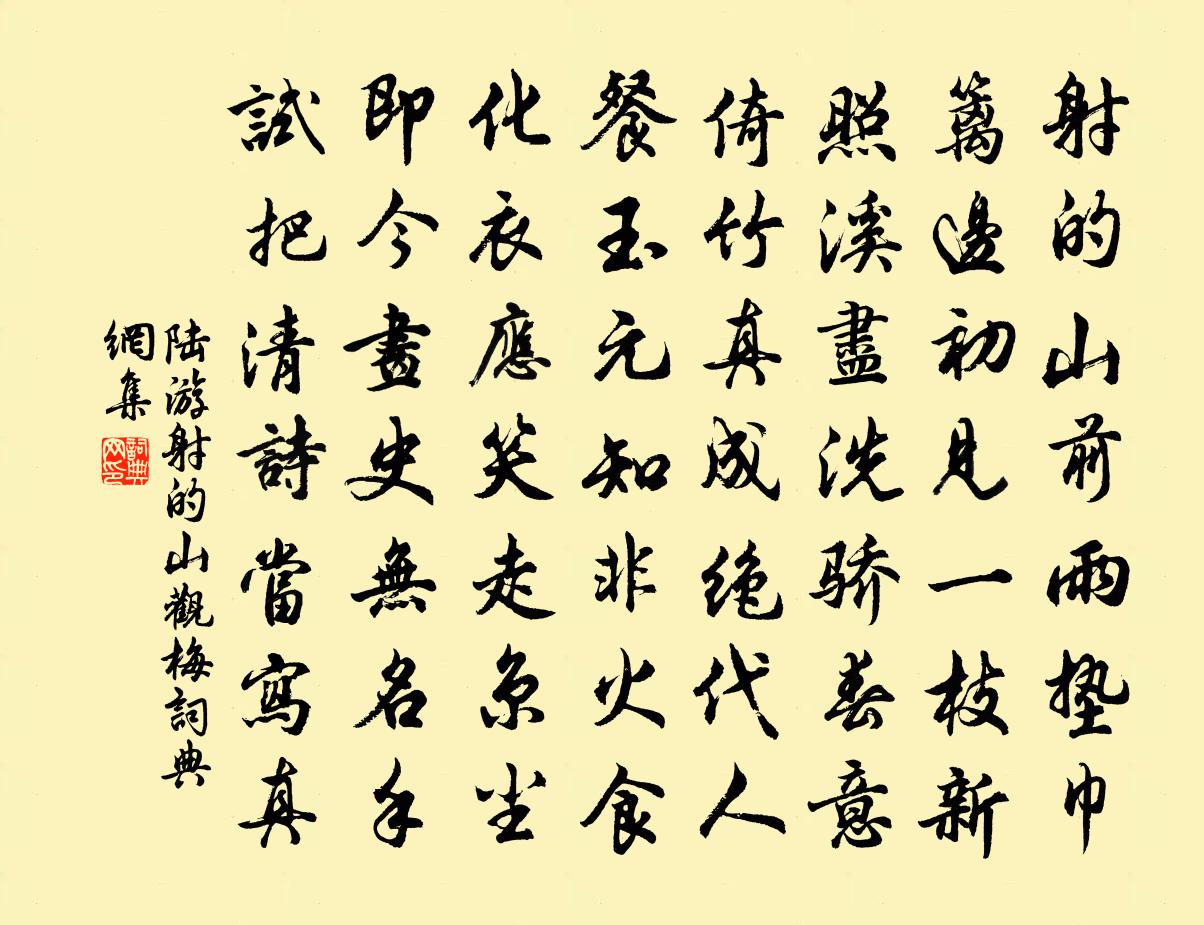 射的山前雨墊巾
篱邊初見一枝新
照溪盡洗骄春意
倚竹真成绝代人
餐玉元知非火食
化衣應笑走京尘
即今畫史無名手
試把清詩當寫真
陆游射的山觀梅詞典
網集
詞典
网印